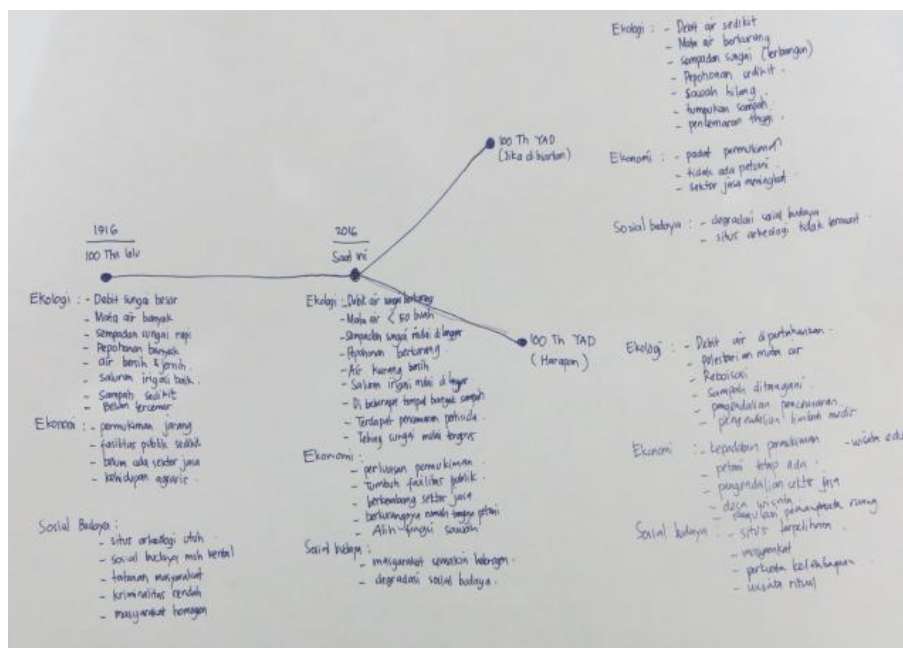 1916
100 Thn lalu
Ekologi : - Debit sungai besar
- Mata air banyak
- sempadan sungai rapi
- Pepohonan banyak
- air bersih & jernih
- saluran irigasi baik.
- Sampah sedikit
- Belum tercemar
Ekonomi : - permukiman jarang
- fasilitas publik sedikit
- belum ada sektor jasa
- kehidupan agraris.
Sosial Budaya :
- situs arkeologi utuh
- sosial budaya msh kental
- tatanan masyarakat
- kriminalitas rendah
- masyarakat homogen
2016
Saat ini
Ekologi : - Debit air sungai berkurang
- Mata air < 50 buah
- Sempadan sungai mulai dilanggar
- Pepohonan berkurang
- Air kurang bersih
- Saluran irigasi mulai di
- Di beberapa tempat banyak sampah
- Terdapat pencemaran
- Tebing sungai mulai tergerus
Ekonomi :
- perluasan permukiman.
- Tumbuh fasilitas publik.
- berkembang sektor jasa
- berkurangnya rumah tangga petani
- Alih fungsi sawah
Sosial budaya :
- masyarakat semakin heterogen.
- degradasi sosial budaya.
100 Th YAD
(Jika dibiarkan)
Ekologi : - Debit air sedikit
- Mata air berkurang
- sempadan sungai (terbangun)
- Pepohonan sedikit.
- Sawah hilang.
- tumpukan sampah.
- pencemaran tinggi.
Ekonomi : - padat permukiman
- tidak ada petani
- sektor jasa meningkat.
Sosial budaya : - degradasi sosial budaya
- situs arkeologi tidak terawat.
100 Th YAD
(Harapan)
Ekologi : - Debit air dipertahankan.
- Pelestarian mata air
- Reboisasi
- Sampah ditangani
- pengendalian pencemaran.
- pengendalian limbah
Ekonomi : - kepadatan permukiman - wisata edu
- petani tetap ada.
- pengendalian sektor jasa
- desa wisata
- pemanfaatan ruang
Sosial budaya : - situs terpelihara
- masyarakat
- kelembagaan.
- wisata ritual